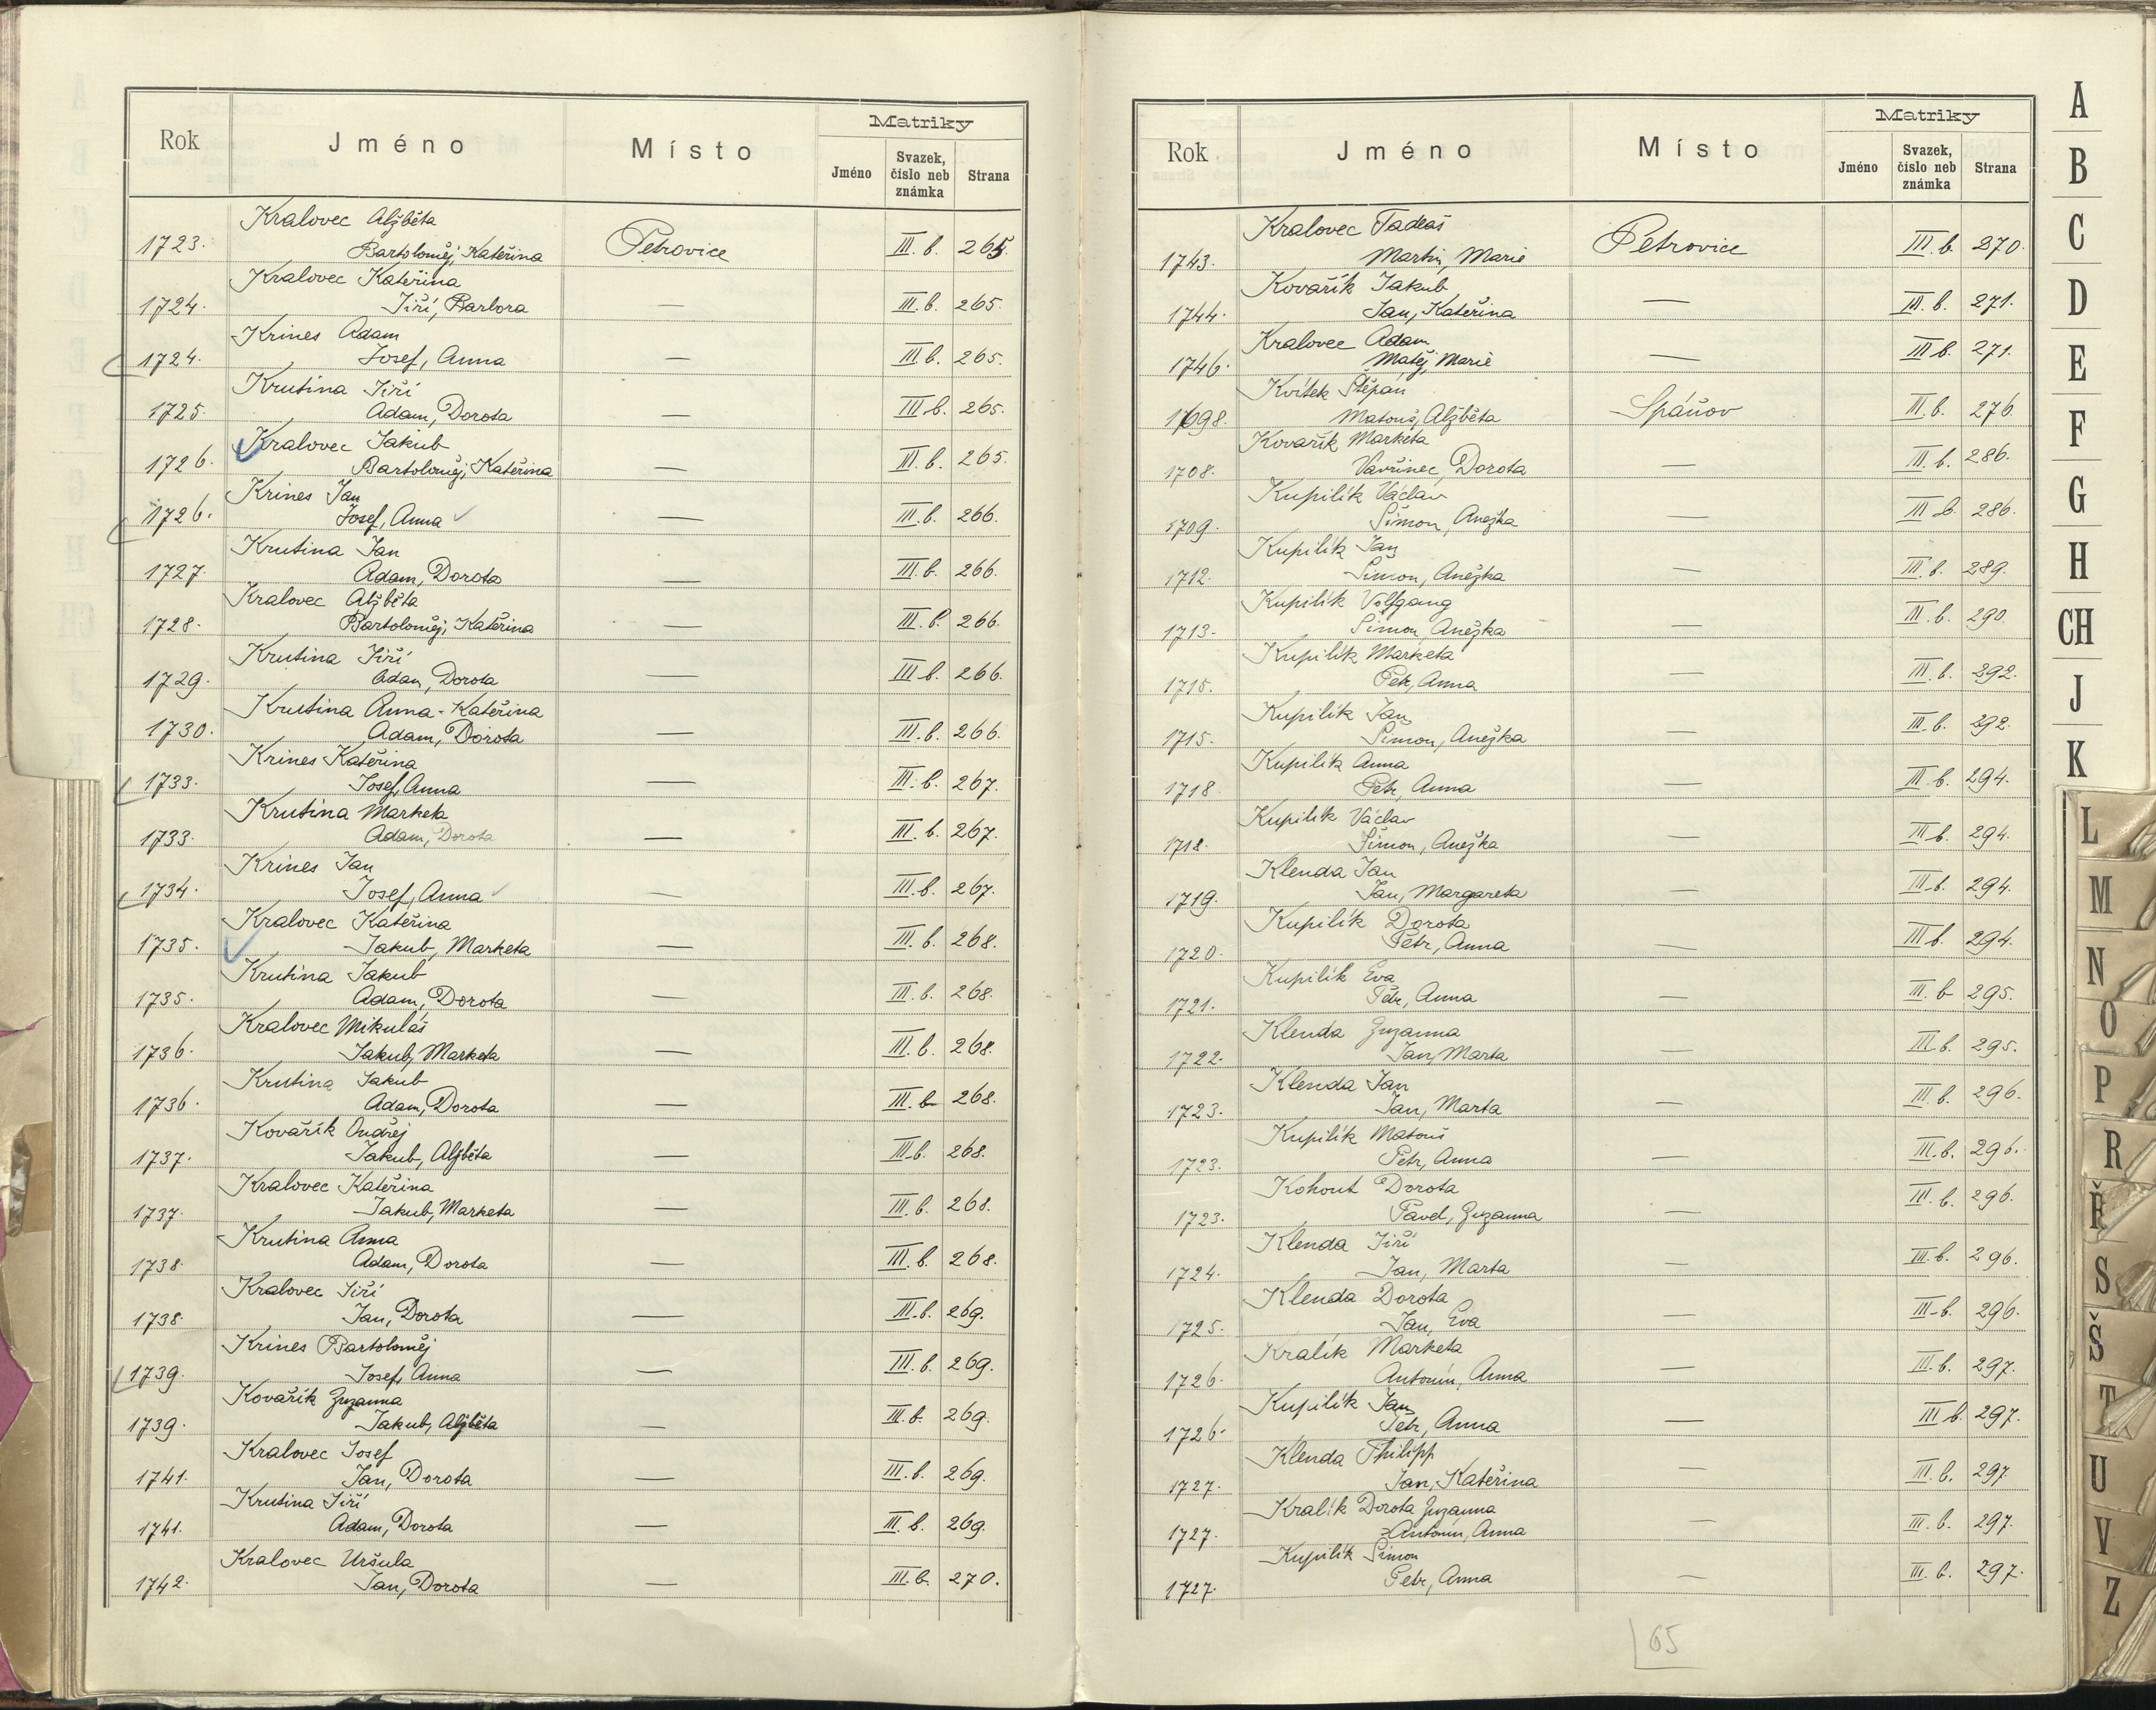 Rok Jméno Místo Matriky
Jméno Svazek, číslo neb známka Strana
Kralovec Alžběta
1723. Bartoloměj, Kateřina Petrovice III. b. 265.
Kralovec Kateřina
1724. Jiří, Barbora — III. b. 265.
Krines Adam
1724. Josef, Anna — III. b. 265.
Krutina Jiří
1725. Adam, Dorota — III b. 265.
Kralovec Jakub
1726. Bartoloměj, Kateřina — III. b. 265.
Krines Jan
1726. Josef, Anna — III. b. 266.
Krutina Jan
1727. Adam, Dorota — III. b. 266.
Kralovec Alžběta
1728. Bartoloměj, Kateřina — III. b. 266.
Krutina Jiří
1729. Adam, Dorota — III b. 266.
Krutina Anna - Kateřina
1730. Adam, Dorota — III. b. 266.
Krines Kateřina
1733. Josef, Anna — III. b. 267.
Krutina Marketa
1733. Adam, Dorota — III. b. 267.
Krines Jan
1734. Josef, Anna — III. b. 267.
Kralovec Kateřina
1735. Jakub, Marketa — III. b. 268.
Krutina Jakub
1735. Adam, Dorota — III. b. 268.
Kralovec Mikuláš
1736. Jakub, Marketa — III. b. 268.
Krutina Jakub
1736. Adam, Dorota — III. b 268.
Kovařík Ondřej
1737. Jakub, Alžběta — III. b. 268.
Kralovec Kateřina
1737. Jakub, Marketa — III. b. 268.
Krutina Anna
1738. Adam, Dorota — III. b. 268.
Kralovec Jiří
1738. Jan, Dorota — III. b. 269.
Krines Bartoloměj
1739. Josef, Anna — III. b. 269.
Kovařík Zuzanna
1739. Jakub, Alžběta — III. b. 269.
Kralovec Josef
1741. Jan, Dorota — III. b. 269.
Krutina Jiří
1741. Adam, Dorota — III. b. 269.
Kralovec Uršula
1742. Jan, Dorota — III. b. 270.
Rok Jméno Místo Matriky
Jméno Svazek, číslo neb známka Strana
Kralovec Tadeáš
1743. Martin, Marie Petrovice III. b. 270.
Kovařík Jakub
1744. Jan, Kateřina — III. b. 271.
Kralovec Adam
1746. Matěj, Marie — III b. 271.
Kvítek Štěpán
1698. Matouš, Alžběta Spáňov III. b. 276.
Kovařík Marketa
1708. Vavřinec, Dorota — III. b. 286.
Kupilík Václav
1709. Šimon, Anežka — III b. 286.
Kupilík Jan
1712. Šimon, Anežka — III. b. 289.
Kupilík Volfgang
1713. Šimon, Anežka — III. b. 290.
Kupilík Marketa
1715. Petr, Anna — III. b. 292.
Kupilík Jan
1715. Šimon, Anežka — III. b. 292.
Kupilík Anna
1718. Petr, Anna — III b. 294.
Kupilík Václav
1718. Šimon, Anežka — III b. 294.
Klenda Jan
1719. Jan, Margareta — III. b. 294.
Kupilík Dorota
1720. Petr, Anna — III b. 294.
Kupilík Eva
1721. Petr, Anna — III. b 295.
Klenda Zuzanna
1722. Jan, Marta — III b. 295.
Klenda Jan
1723. Jan, Marta — III b. 296.
Kupilík Matouš
1723. Petr, Anna — III. b. 296.
Kohout Dorota
1723. Pavel, Zuzanna — III. b. 296.
Klenda Jiří
1724. Jan, Marta — III. b. 296.
Klenda Dorota
1725. Jan, Eva — III b. 296.
Kralík Marketa
1726. Antonín, Anna — III. b. 297.
Kupilík Jan
1726. Petr, Anna — III b. 297.
Klenda Philipp
1727. Jan, Kateřina — III. b. 297.
Kralík Dorota Zuzanna
1727. Antonín, Anna — III. b. 297.
Kupilík Šimon
1727. Petr, Anna — III. b. 297.
65
A
B
C
D
E
F
G
H
CH
J
K
L
M
N
O
P
R
Ř
S
Š
T
U
V
Z